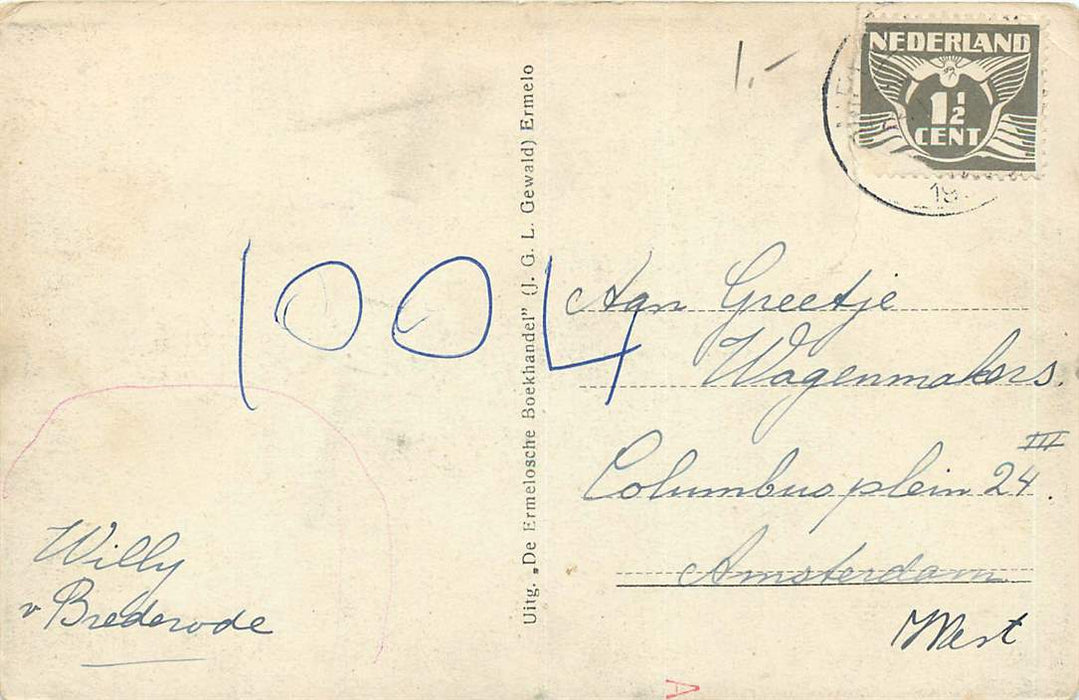 1.-
NEDERLAND
1½
CENT
19
Uitg. „De Ermelosche Boekhandel” (J. G. L. Gewald) Ermelo
1004
Aan Greetje
Wagenmakers.
Columbusplein 24 III.
Amsterdam
West
Willy
v Brederode
A